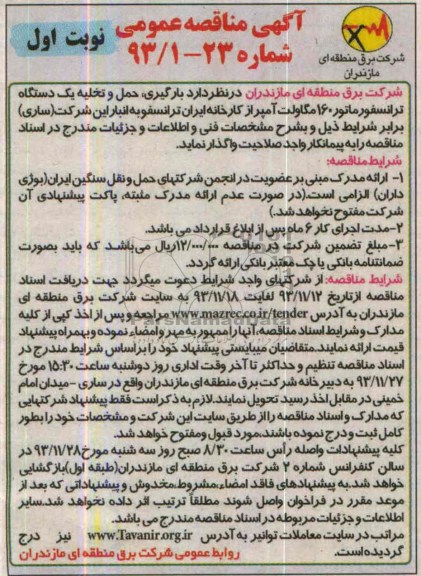 آگهی مناقصه عمومی
شماره ۲۳-۹۳/۱
نوبت اول
شرکت برق منطقه ای
مازندران
شرکت برق منطقه ای مازندران درنظردارد بارگیری، حمل و تخلیه یک دستگاه
ترانسفورماتور ۱۶۰ مگاولت آمپر از کارخانه ایران ترانسفو به انبار این شرکت(ساری)
برابر شرایط ذیل و بشرح مشخصات فنی و اطلاعات و جزئیات مندرج در اسناد
مناقصه را به پیمانکار واجد صلاحیت واگذار نماید.
شرایط مناقصه:
۱- ارائه مدرک مبنی بر عضویت در انجمن شرکتهای حمل و نقل سنگین ایران(بوژی
داران) الزامی است.(در صورت عدم ارائه مدرک مثبته، پاکت پیشنهادی آن
شرکت مفتوح نخواهد شد.)
۲-مدت اجرای کار ۶ ماه پس از ابلاغ قرارداد می باشد.
۳-مبلغ تضمین شرکت در مناقصه ۱۲/۰۰۰/۰۰۰ریال می‌باشد که باید بصورت
ضمانتنامه بانکی یا چک معتبر بانکی ارائه گردد.
شرایط مناقصه: از شرکتهای واجد شرایط دعوت میگردد جهت دریافت اسناد
مناقصه ازتاریخ ۹۳/۱۱/۱۲ لغایت ۹۳/۱۱/۱۸ به سایت شرکت برق منطقه ای
مازندران به آدرس www.mazrec.co.ir/tender مراجعه و پس از اخذ کپی از کلیه
مدارک و شرایط اسناد مناقصه، آنها را ممهور به مهر و امضاء نموده و بهمراه پیشنهاد
قیمت ارائه نمایند.متقاضیان میبایستی پیشنهاد خود را بر اساس شرایط مندرج در
اسناد مناقصه تنظیم و حداکثر تا آخر وقت اداری روز دوشنبه ساعت ۱۵:۳۰ مورخ
۹۳/۱۱/۲۷ به دبیرخانه شرکت برق منطقه ای مازندران واقع در ساری - میدان امام
خمینی در مقابل اخذ رسید تحویل نمایند.لازم به ذکر است فقط پیشنهاد شرکتهایی
که مدارک و اسناد مناقصه را از طریق سایت این شرکت و مشخصات خود را بطور
کامل ثبت و درج نموده باشند،مورد قبول ومفتوح خواهد شد.
کلیه پیشنهادات واصله رأس ساعت ۸/۳۰ صبح روز سه شنبه مورخ ۹۳/۱۱/۲۸ در
سالن کنفرانس شماره ۲ شرکت برق منطقه ای مازندران(طبقه اول)بازگشایی
خواهد شد.به پیشنهادهای فاقد امضاء،مشروط،مخدوش و پیشنهاداتی که بعد از
موعد مقرر در فراخوان واصل شوند مطلقاً ترتیب اثر داده نخواهد شد.سایر
اطلاعات و جزئیات مربوطه در اسناد مناقصه مندرج می باشد.
مراتب در سایت معاملات توانیر به آدرس www.Tavanir.org.ir نیز درج
گردیده است.
روابط عمومی شرکت برق منطقه ای مازندران